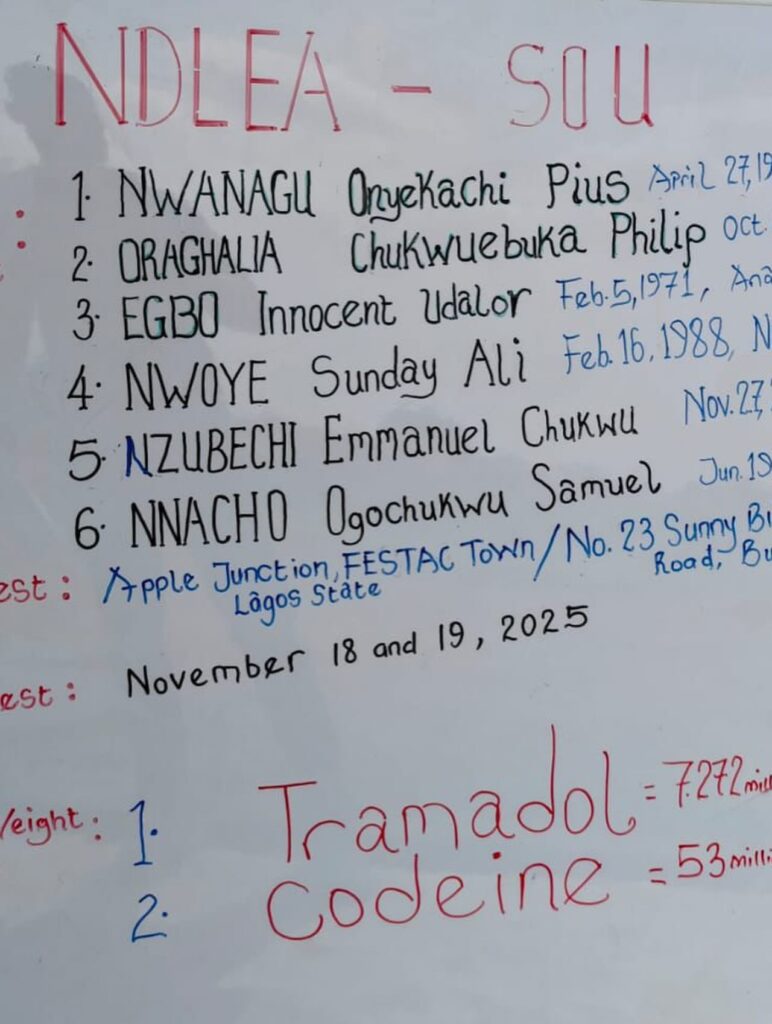 NDLEA - SOU
1. NWANAGU Onyekachi Pius April 27, 19
2. ORAGHALIA Chukwuebuka Philip Oct.
3. EGBO Innocent Udalor Feb. 5, 1971, Ana
4. NWOYE Sunday Ali Feb. 16, 1988, N
5. NZUBECHI Emmanuel Chukwu Nov. 27,
6. NNACHO Ogochukwu Samuel Jun. 19
est: Apple Junction, FESTAC Town / No. 23 Sunny Bu
Lagos State Road, Bu
est: November 18 and 19, 2025
eight: 1. Tramadol = 7.272 mill
2. Codeine = 53 milli